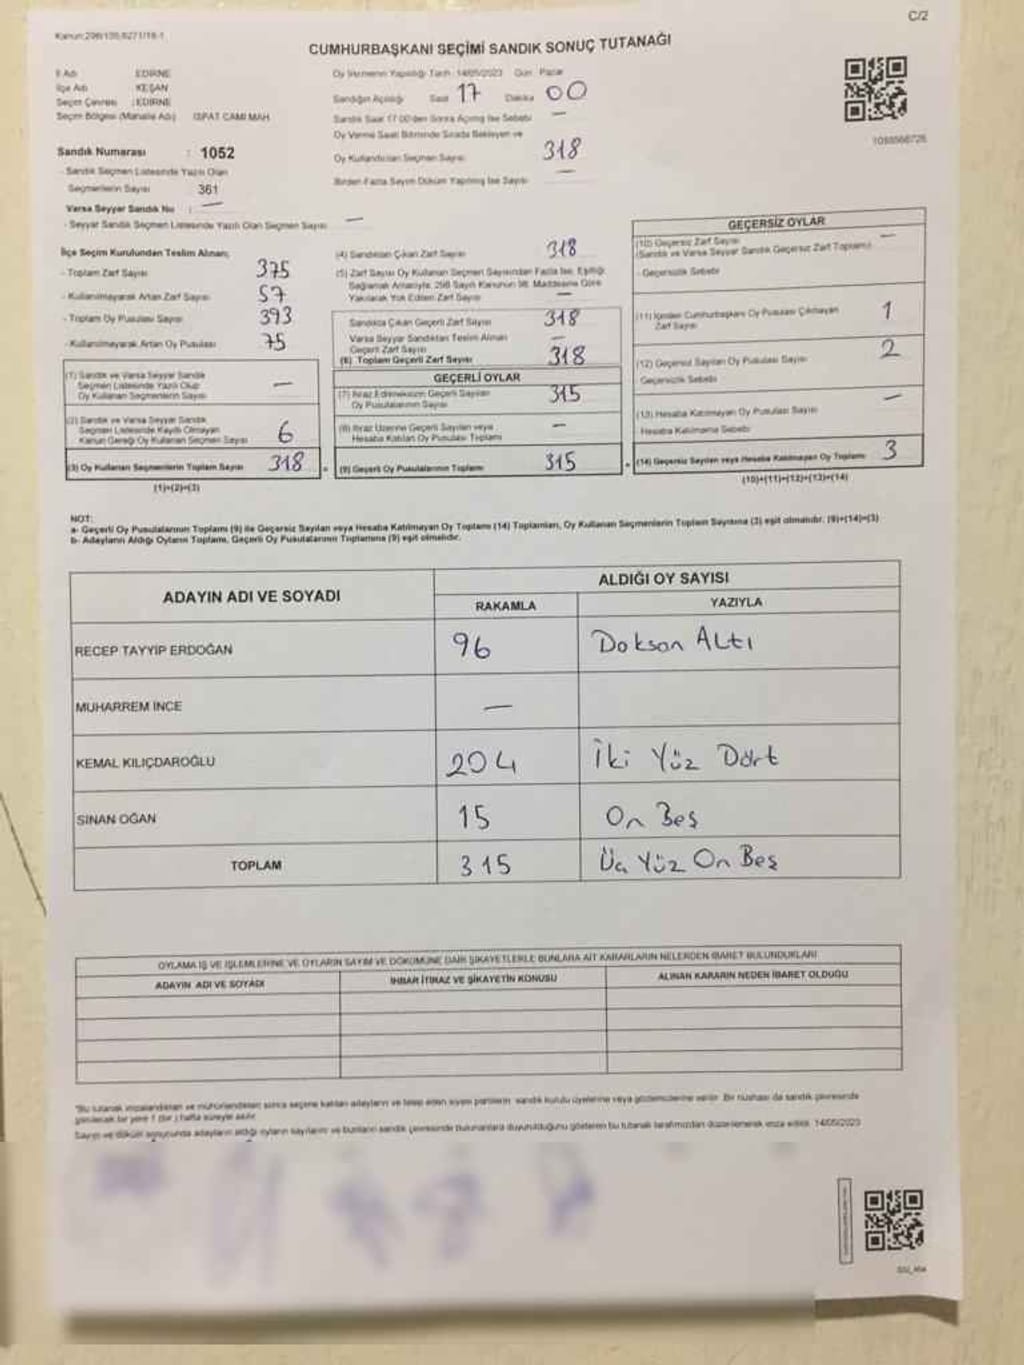 C/2
Kanun:298/105,6271/18-1
CUMHURBAŞKANI SEÇİMİ SANDIK SONUÇ TUTANAĞI
İl Adı EDİRNE
İlçe Adı KEŞAN
Seçim Çevresi : EDİRNE
Seçim Bölgesi (Mahalle Adı) İSPAT CAMİ MAH
Sandık Numarası : 1052
- Sandık Seçmen Listesinde Yazılı Olan
Seçmenlerin Sayısı 361
Varsa Seyyar Sandık No : —
- Seyyar Sandık Seçmen Listesinde Yazılı Olan Seçmen Sayısı —
Oy Verme'nin Yapıldığı Tarih :14/05/2023 Gün: Pazar
Sandığın Açıldığı Saat 17 Dakika 00
Sandık Saat 17.00'den Sonra Açılmış İse Sebebi —
Oy Verme Saati Bitiminde Sırada Bekleyen ve
Oy Kullandırılan Seçmen Sayısı 318
Birden Fazla Sayım Döküm Yapılmış İse Sayısı —
1088566726
İlçe Seçim Kurulundan Teslim Alınan;
- Toplam Zarf Sayısı 375
- Kullanılmayarak Artan Zarf Sayısı 57
- Toplam Oy Pusulası Sayısı 393
- Kullanılmayarak Artan Oy Pusulası 75
(1) Sandık ve Varsa Seyyar Sandık
Seçmen Listesinde Yazılı Olup
Oy Kullanan Seçmenlerin Sayısı —
(2) Sandık ve Varsa Seyyar Sandık
Seçmen Listesinde Kayıtlı Olmayan
Kanun Gereği Oy Kullanan Seçmen Sayısı 6
(3) Oy Kullanan Seçmenlerin Toplam Sayısı 318
(1)+(2)=(3)
(4) Sandıktan Çıkan Zarf Sayısı 318
(5) Zarf Sayısı Oy Kullanan Seçmen Sayısından Fazla İse, Eşitliği
Sağlamak Amacıyla, 298 Sayılı Kanunun 98. Maddesine Göre
Yakılarak Yok Edilen Zarf Sayısı —
Sandıkta Çıkan Geçerli Zarf Sayısı 318
Varsa Seyyar Sandıktan Teslim Alınan
Geçerli Zarf Sayısı —
(6) Toplam Geçerli Zarf Sayısı 318
GEÇERLİ OYLAR
(7) İtiraz Edilmeksizin Geçerli Sayılan
Oy Pusulalarının Sayısı 315
(8) İtiraz Üzerine Geçerli Sayılan veya
Hesaba Katılan Oy Pusulası Toplamı —
(9) Geçerli Oy Pusulalarının Toplamı 315
GEÇERSİZ OYLAR
(10) Geçersiz Zarf Sayısı
(Sandık ve Varsa Seyyar Sandık Geçersiz Zarf Toplamı) —
- Geçersizlik Sebebi
(11) İçinden Cumhurbaşkanı Oy Pusulası Çıkmayan
Zarf Sayısı 1
(12) Geçersiz Sayılan Oy Pusulası Sayısı 2
Geçersizlik Sebebi
(13) Hesaba Katılmayan Oy Pusulası Sayısı —
Hesaba Katılmama Sebebi
(14) Geçersiz Sayılan veya Hesaba Katılmayan Oy Toplamı 3
(10)+(11)+(12)+(13)=(14)
NOT:
a- Geçerli Oy Pusulalarının Toplamı (9) ile Geçersiz Sayılan veya Hesaba Katılmayan Oy Toplamı (14) Toplamları, Oy Kullanan Seçmenlerin Toplam Sayısına (3) eşit olmalıdır. (9)+(14)=(3)
b- Adayların Aldığı Oyların Toplamı, Geçerli Oy Pusulalarının Toplamına (9) eşit olmalıdır.
ADAYIN ADI VE SOYADI ALDIĞI OY SAYISI
RAKAMLA YAZIYLA
RECEP TAYYİP ERDOĞAN 96 Doksan Altı
MUHARREM İNCE —
KEMAL KILIÇDAROĞLU 204 İki Yüz Dört
SİNAN OĞAN 15 On Beş
TOPLAM 315 Üç Yüz On Beş
OYLAMA İŞ VE İŞLEMLERİNE VE OYLARIN SAYIM VE DÖKÜMÜNE DAİR ŞİKAYETLERLE BUNLARA AİT KARARLARIN NELERDEN İBARET BULUNDUKLARI
ADAYIN ADI VE SOYADI İHBAR İTİRAZ VE ŞİKAYETİN KONUSU ALINAN KARARIN NEDEN İBARET OLDUĞU
"Bu tutanak imzalandıktan ve mühürlendikten sonra seçime katılan adayların ve talep eden siyasi partilerin sandık kurulu üyelerine veya gözlemcilerine verilir. Bir nüshası da sandık çevresinde
görülecek bir yere 1 (bir) hafta süreyle asılır.
Sayım ve döküm sonucunda adayların aldığı oyların sayılarını ve bunların sandık çevresinde bulunanlara duyurulduğunu gösteren bu tutanak tarafımızdan düzenlenerek imza edildi. 14/05/2023